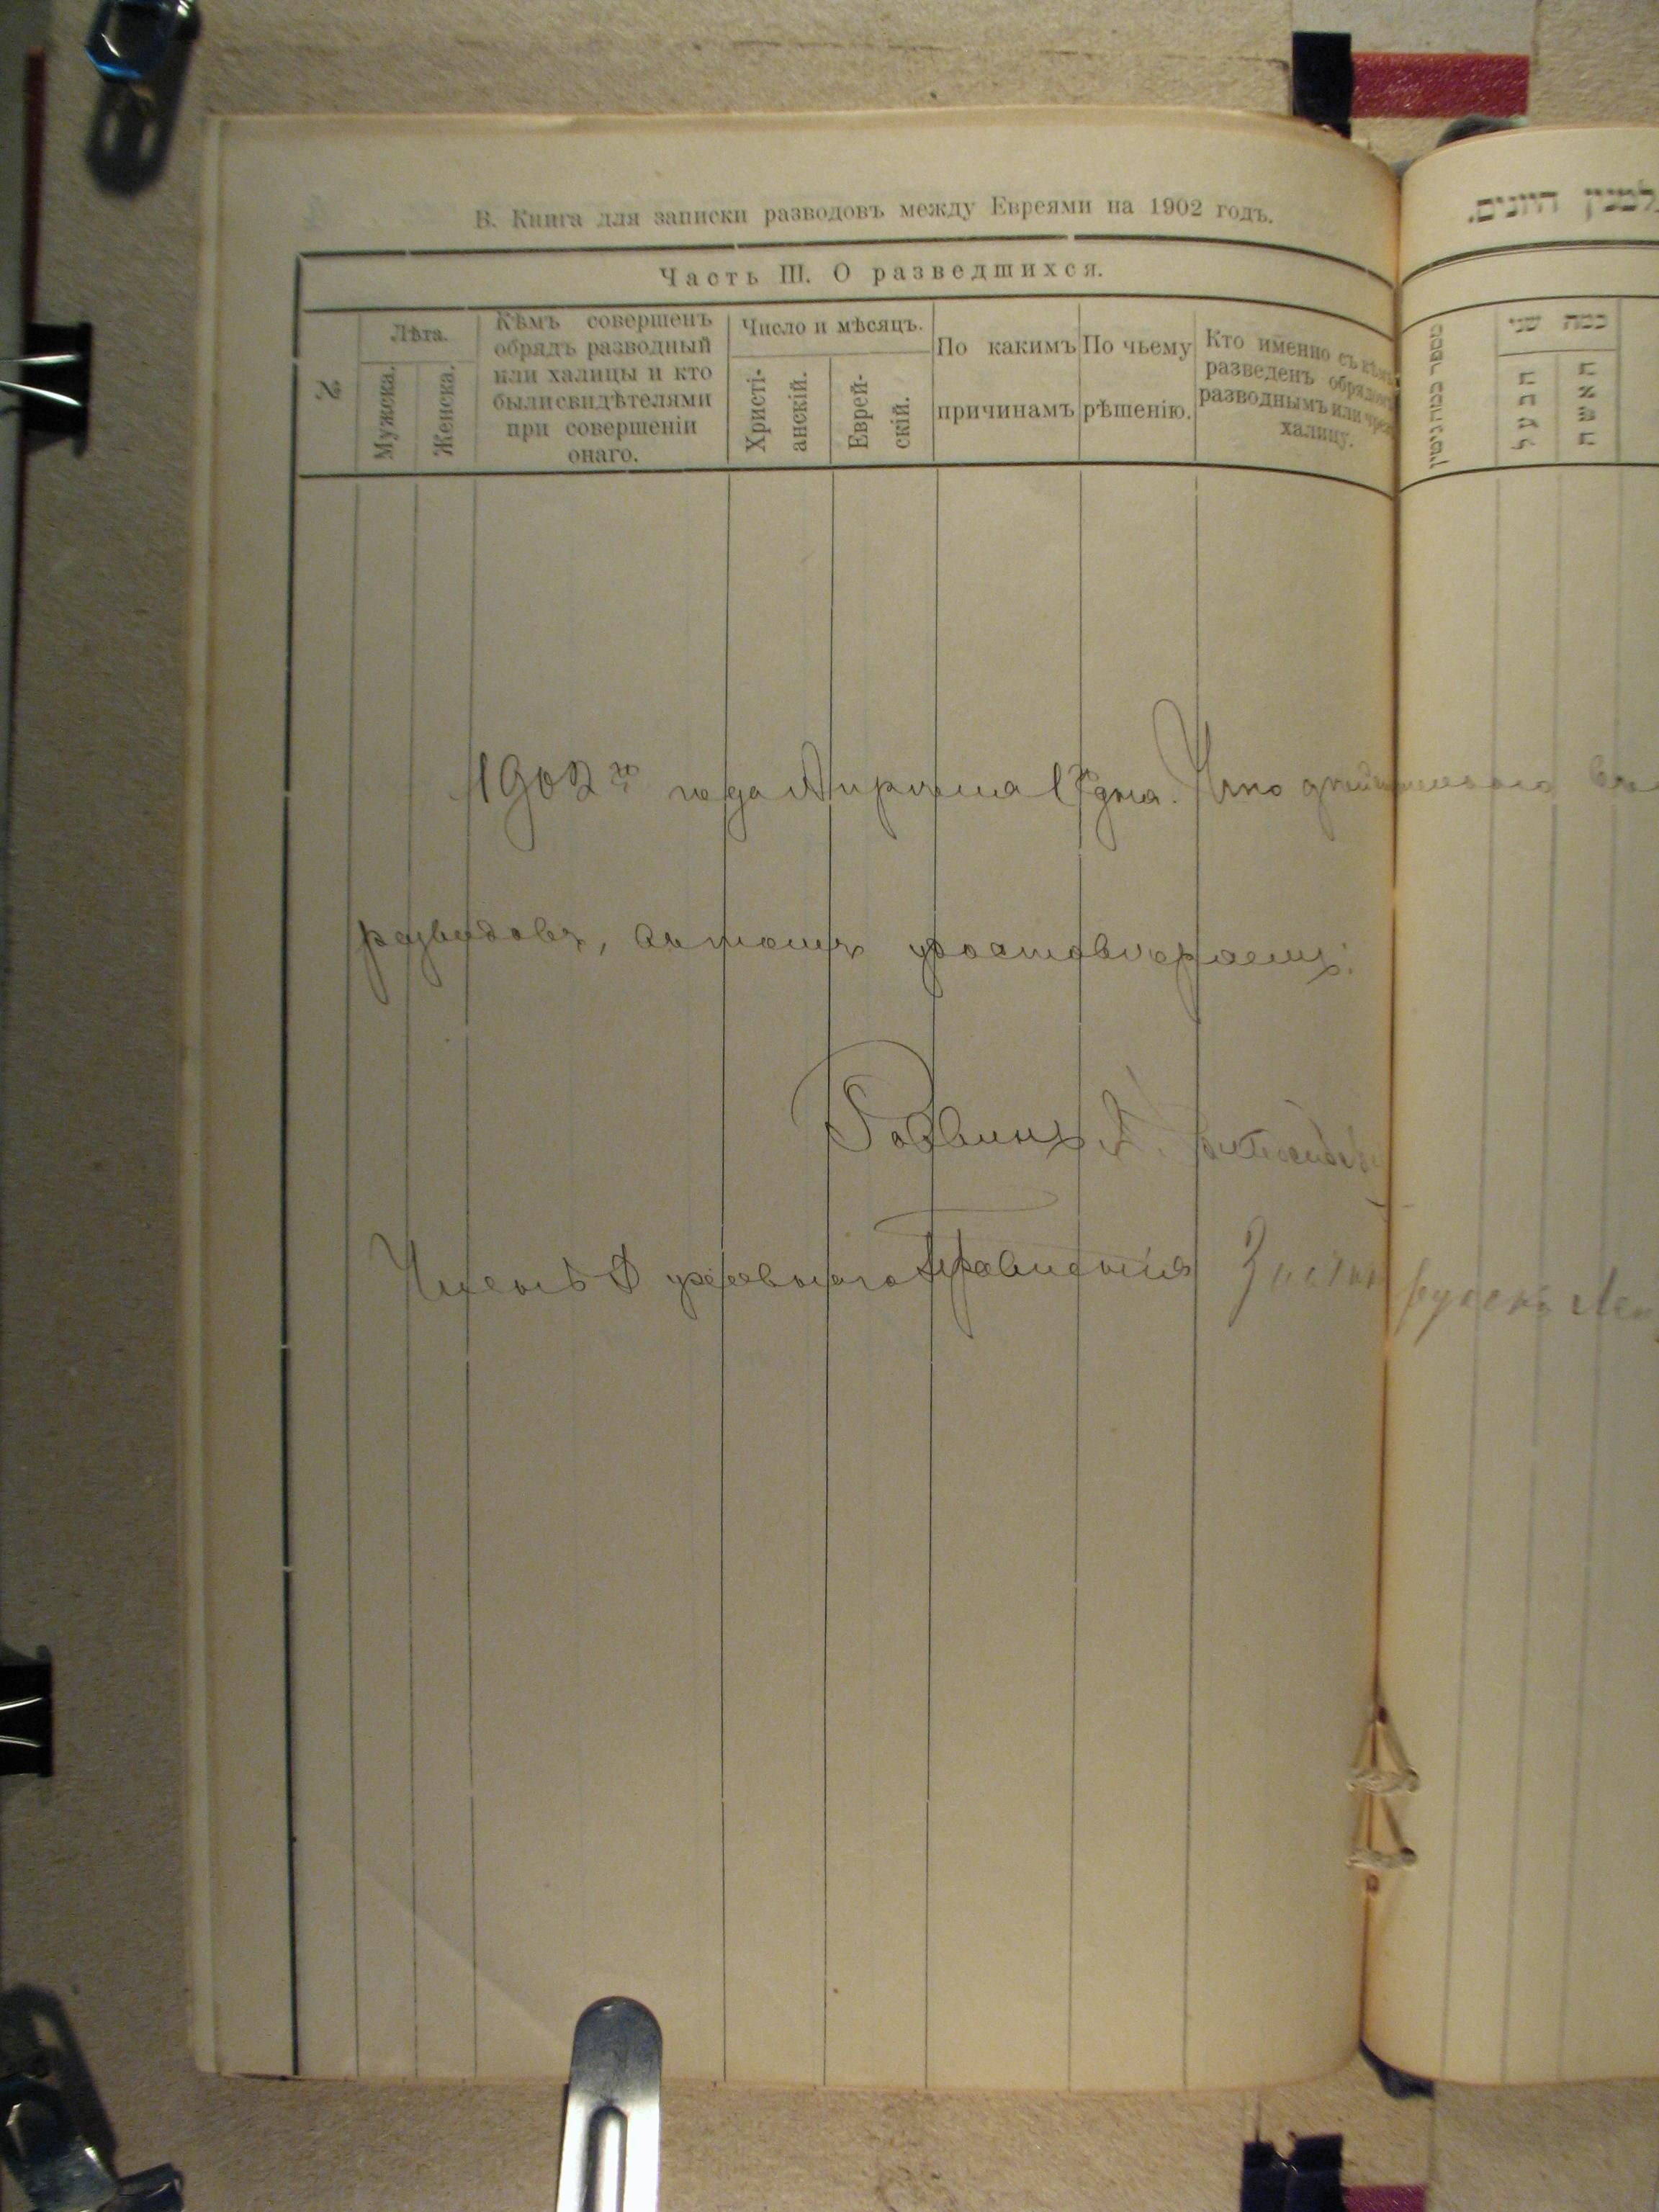 В. Книга для записки разводовъ между Евреями на 1902 годъ.
Часть III. О разведшихся.
№
Лѣта.
Мужска.
Женска.
Кѣмъ совершенъ
обрядъ разводный
или халицы и кто
были свидѣтелями
при совершеніи
онаго.
Число и мѣсяцъ.
Христі-
анскій.
Еврей-
скій.
По какимъ
причинамъ
По чьему
рѣшенію.
Кто именно съ кѣмъ
разведенъ обрядомъ
разводнымъ или чрез
халицу.
1902 го года Апрѣля 1 дня. Что
разводовъ, въ томъ удостовѣряемъ:
Раввинъ
Членъ Духовнаго Правленія
למנין היונים.
מספר כמה גיטין
כמה שני
הבעל
האשה